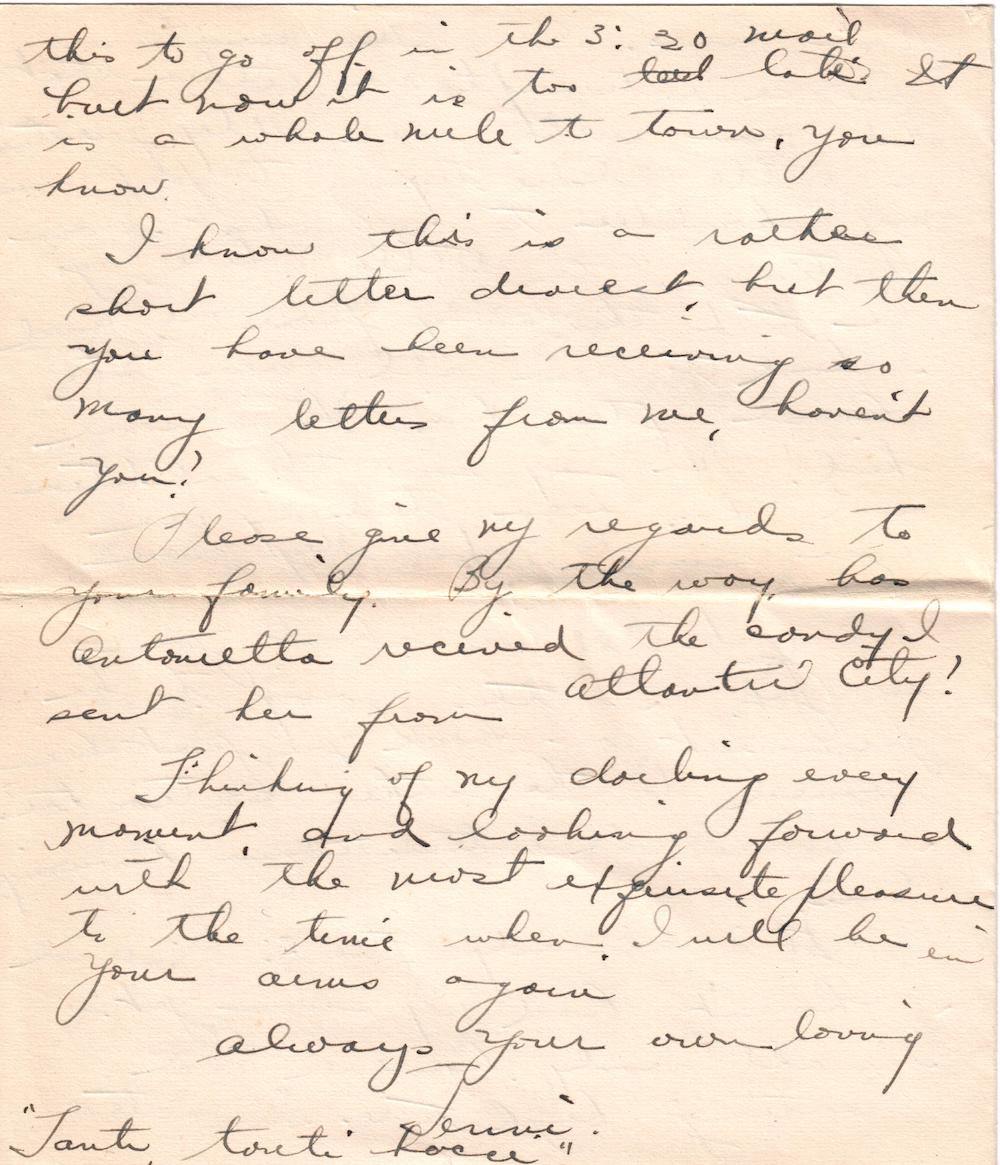 this to go off in the 3:30 mail
but now it is too late. It
is a whole mile to town, you
know.
I know this is a rather
short letter dearest, but then
you have been receiving so
many letters from me, haven't
you?
Please give my regards to
your family. By the way, has
Antonietta recieved the candy I
sent her from Atlantic City?
Thinking of my darling every
moment, and looking forward
with the most exquisite pleasure
to the time when I will be in
your arms again
always your own loving
"Tanti, tanti bacci"